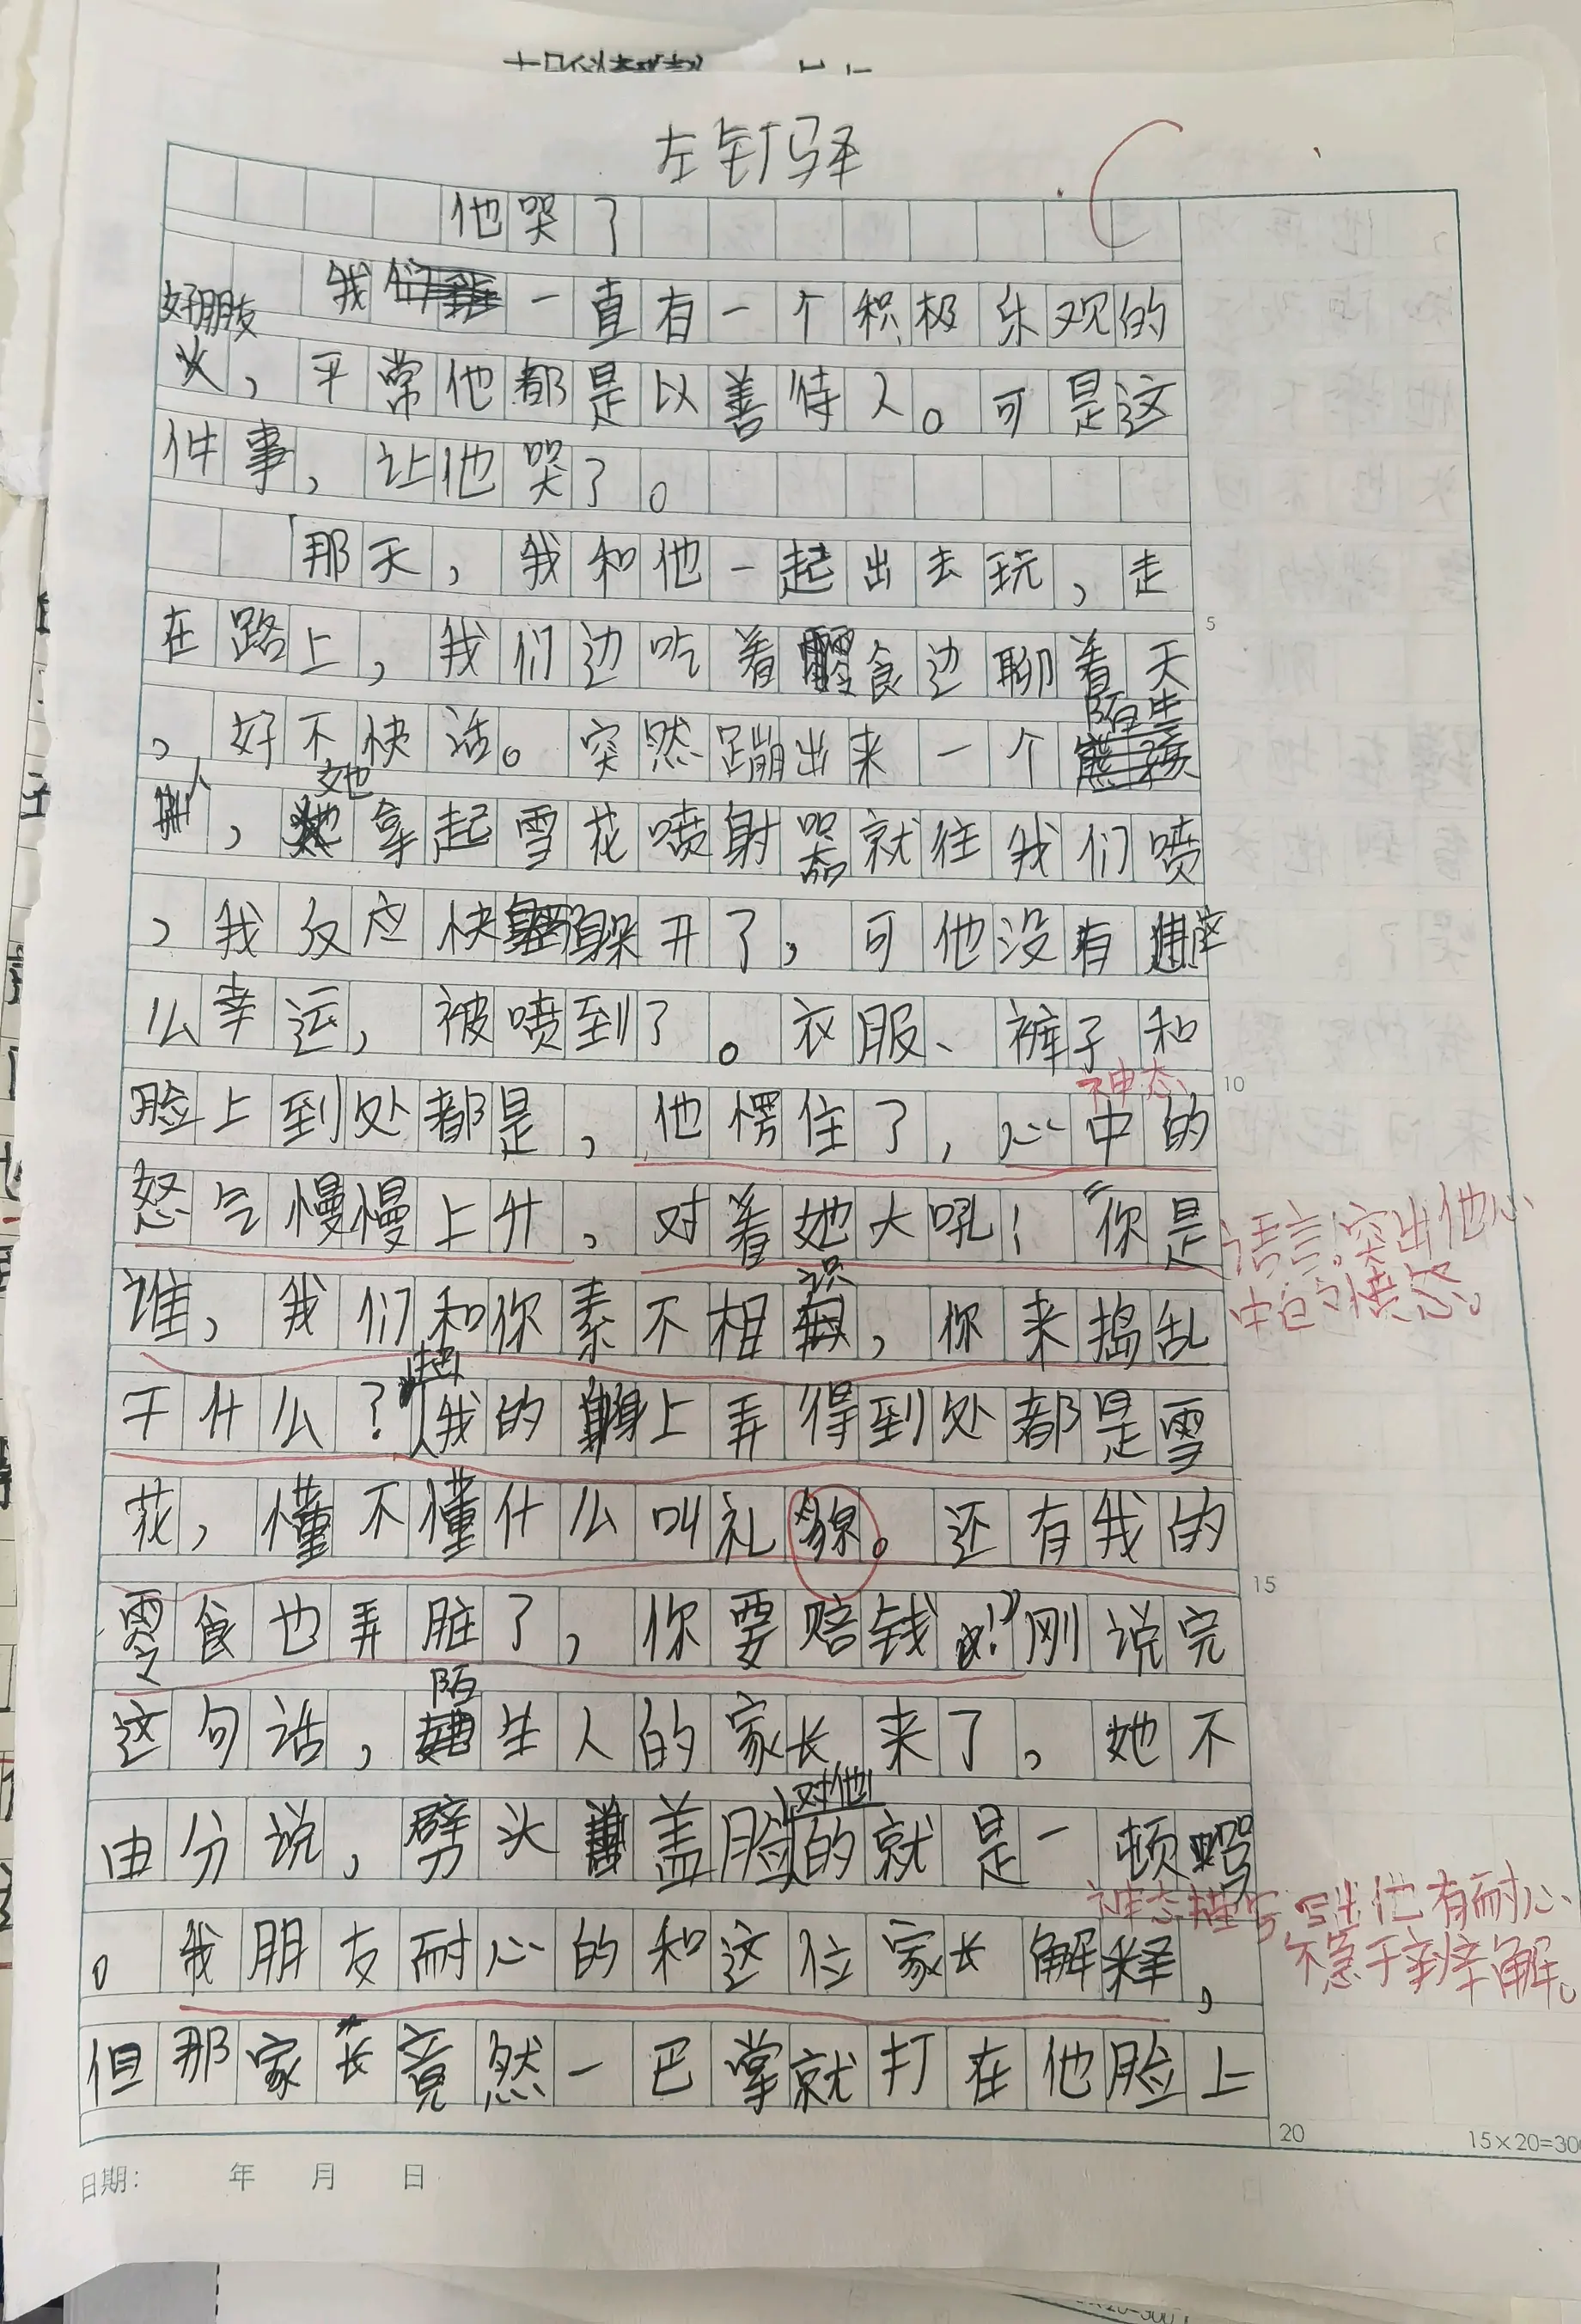 左钰驿
他哭了
我们一直有一个积极乐观的
好朋友
，平常他都是以善待人。可是这
件事，让他哭了。
那天，我和他一起出去玩，走
在路上，我们边吃着零食边聊着天
陌生
，好不快活。突然蹦出来一个
人，她拿起雪花喷射器就往我们喷
，我反应快躲开了，可他没有这
么幸运，被喷到了。衣服、裤子和
神态
脸上到处都是，他愣住了，心中的
怒气慢慢上升，对着她大吼！“你是
语言，突出他心
中的愤怒。
谁，我们和你素不相识，你来捣乱
干什么？把我的身上弄得到处都是雪
花，懂不懂什么叫礼貌。还有我的
15
零食也弄脏了，你要赔钱！”刚说完
这句话，陌生人的家长来了，她不
对他
由分说，劈头盖脸的就是一顿骂
神态描写，写出他有耐心
不急于辩解。
。我朋友耐心的和这位家长解释，
但那家长竟然一巴掌就打在他脸上
5
10
20
15×20=300
日期： 年 月 日